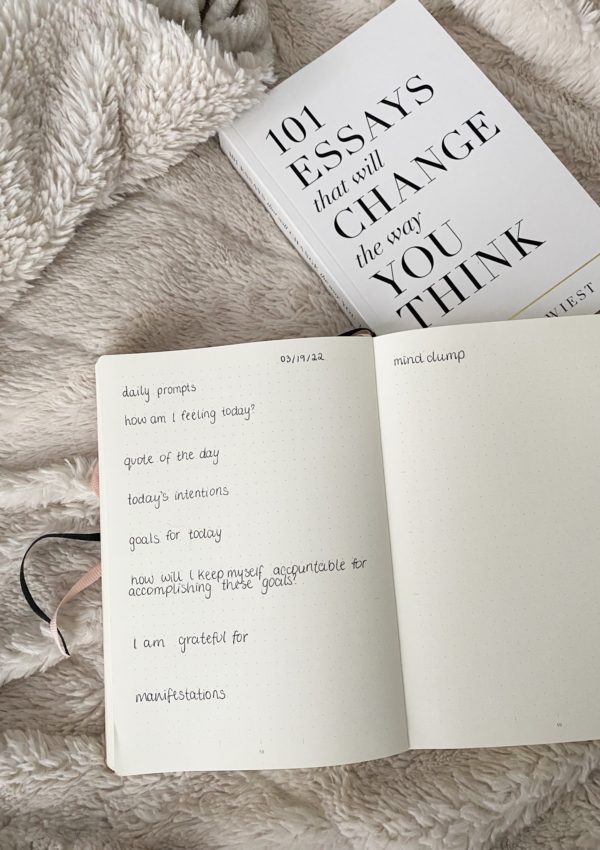 101
ESSAYS
that will
CHANGE
the way
YOU
THINK
WIEST
03/19/22
daily prompts
how am I feeling today?
quote of the day
today's intentions
goals for today
how will I keep myself accountable for
accomplishing these goals?
I am grateful for
manifestations
mind dump